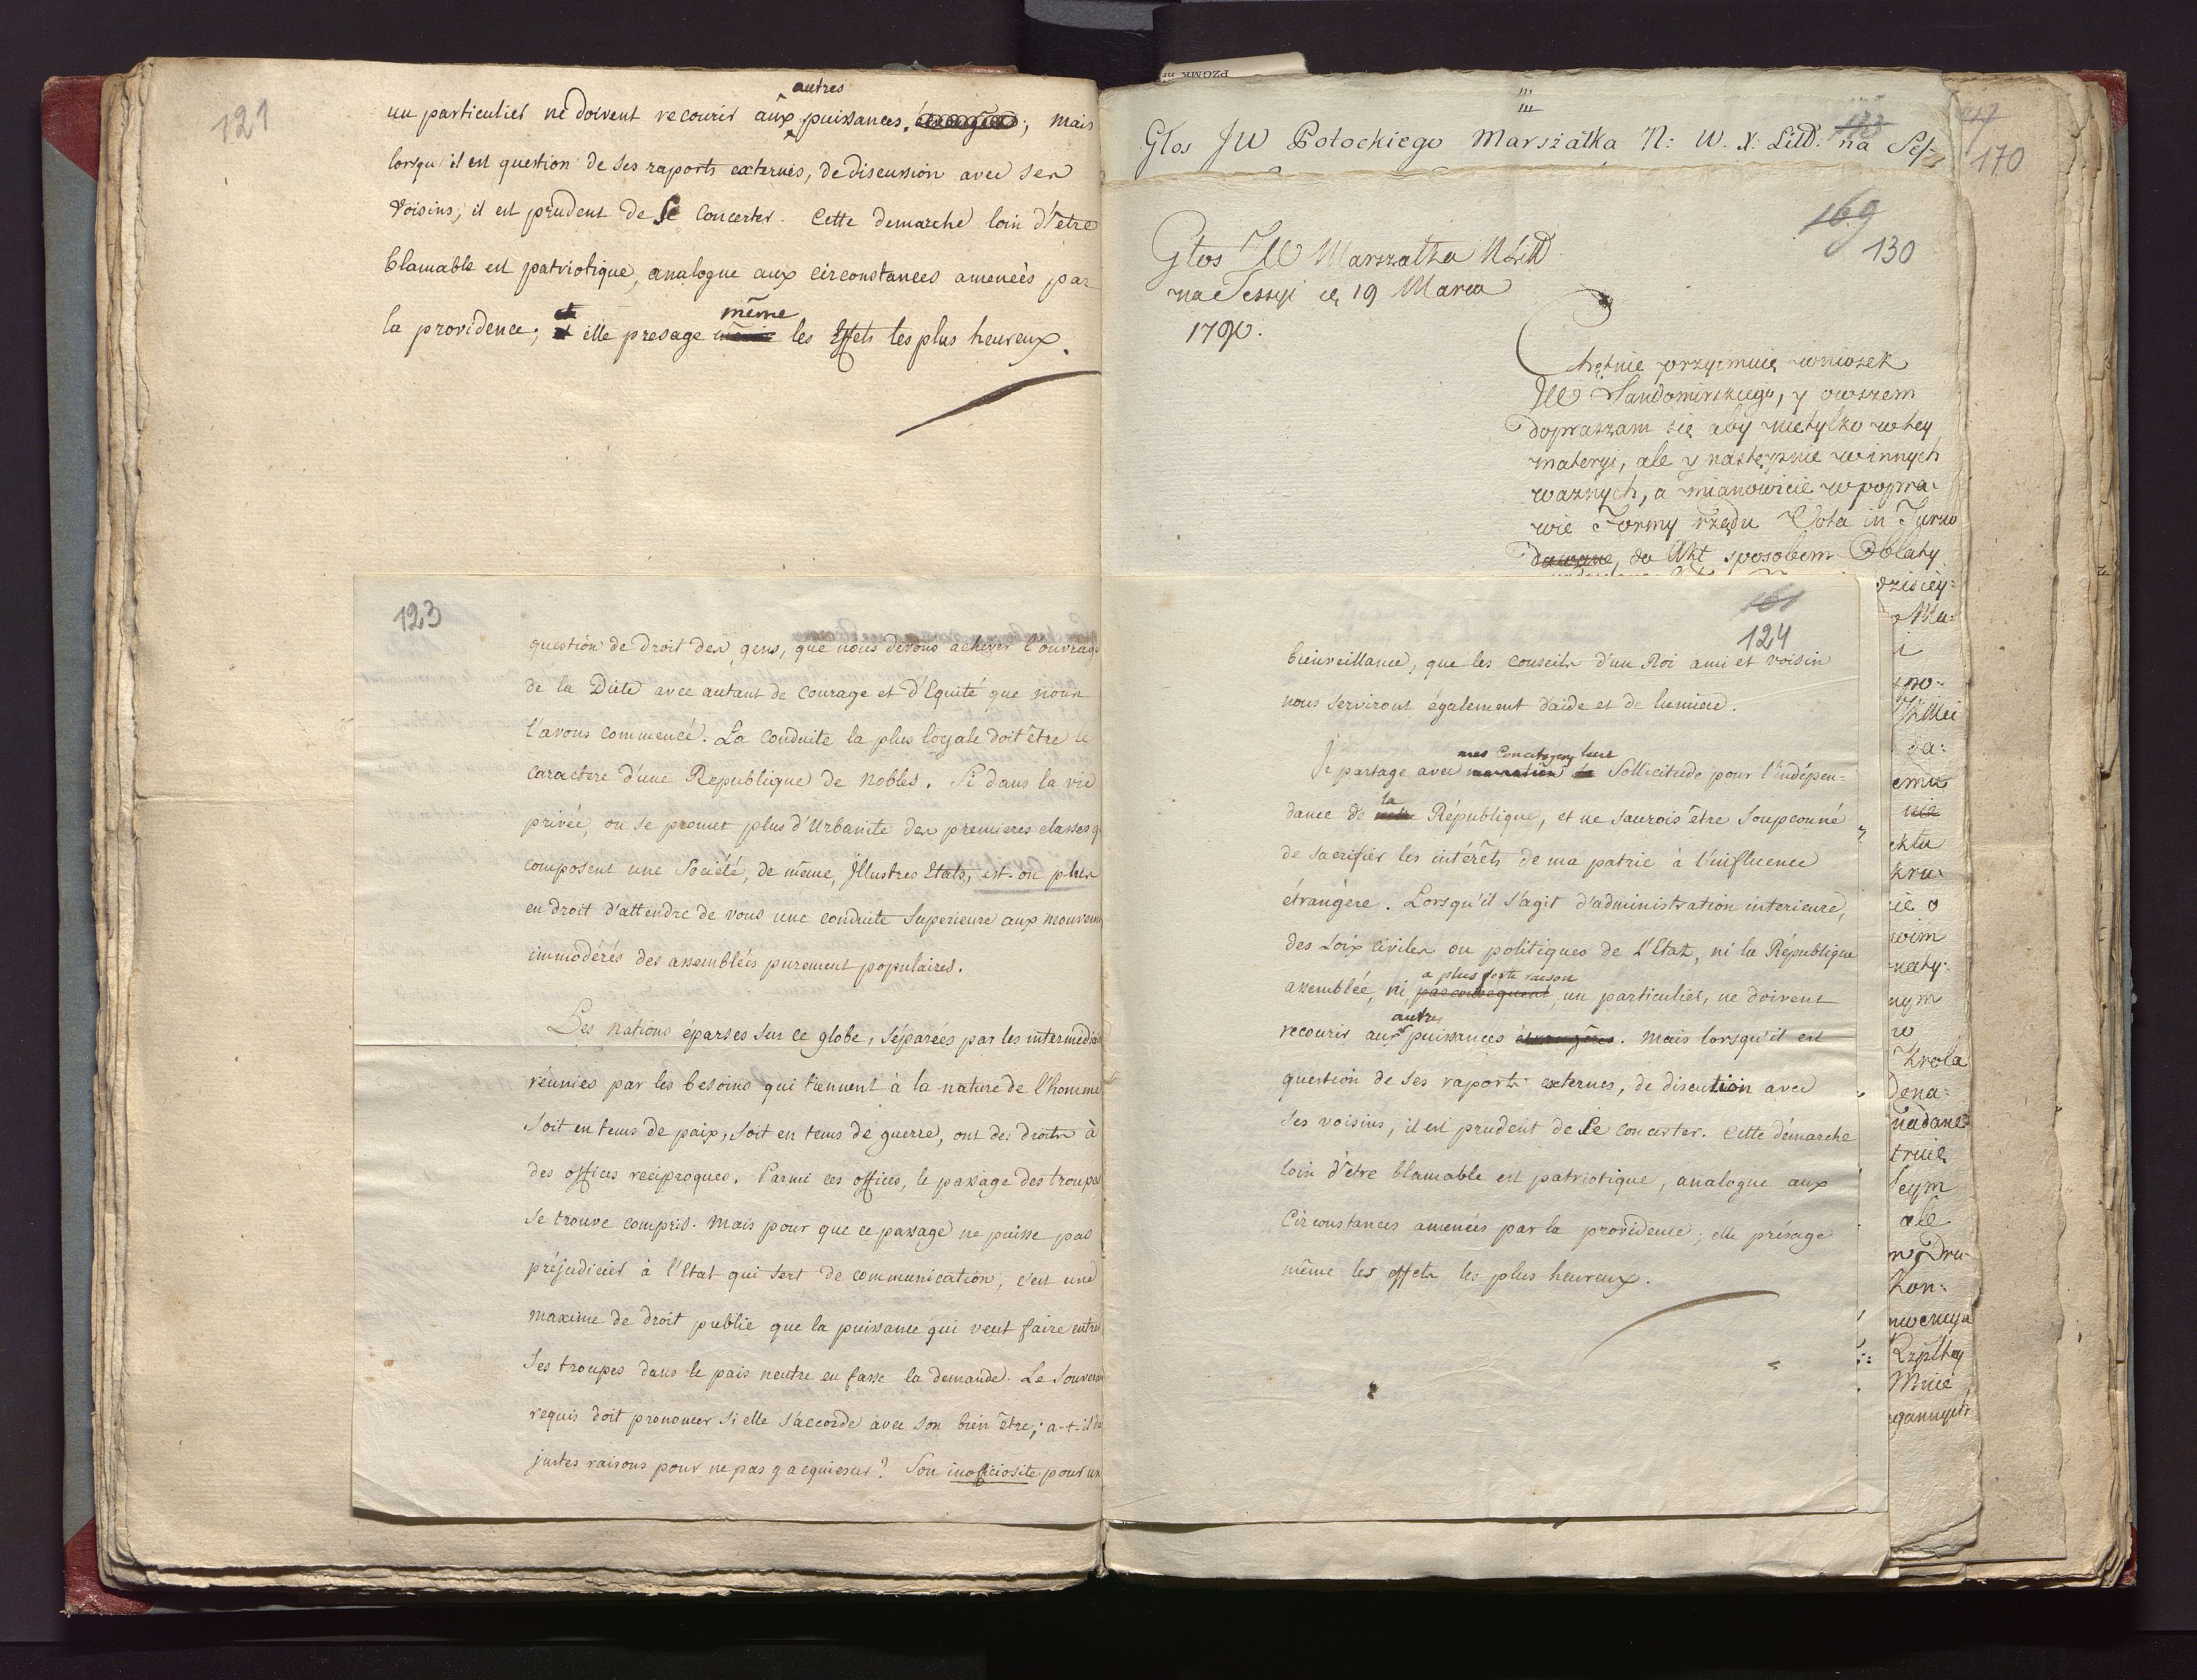 121
autres
un particulier ne doivent recourir aux puissances, étrangères; mais
lorsqu'il est question de ses raports externes, de discussion avec ses
voisins; il est prudent de se concerter. Cette demarche loin d'être
blamable est patriotique, analogue aux circonstances amenées par
et même
la providence; et elle presage même les effets les plus heureux.
123
question de droit des gens, que nous devons achever l'ouvrage
de la Diète avec autant de courage et d'Equité que nous
l'avons commencé. La conduite la plus loyale doit être le
caractere d'une Republique de nobles. Si dans la vie
privée, on se promet plus d'Urbanité des premieres classes q
composent une Société, de même, Illustres Etats, est-on plus
en droit d'attendre de vous une conduite superieure aux mouvem
immodérés des assemblées purement populaires.
Les nations éparses sur ce globe, séparées par les intermédia
réunies par les besoins qui tiennent à la nature de l'homme
soit en tems de paix, soit en tems de guerre, ont des droits à
des offices reciproques. Parmi ces offices, le passage des troupes
se trouve compris. Mais pour que ce passage ne puisse pas
préjudicier à l'Etat qui sert de communication, c'est une
maxime de droit public que la puissance qui veut faire entrer
ses troupes dans le pais neutre en fasse la demande. Le Souverain
requis doit prononcer si elle s'accorde avec son bien être; a-t-il de
justes raisons pour ne pas y acquiescer? Son inofficiosité pour un
PZGMK nr
III
III
Głos JW Potockiego Marszałka N: W. X: Litt. na Ses-
173
170
169
130
Głos JW Marszałka N Litt
na Sessyi d. 19 Marca
1790.
Chętnie przyimuię wniosek
JW Sandomirskiego, y owszem
dopraszam się aby nietylko w tey
materyi, ale y następnie w innych
ważnych, a mianowicie w popra-
wie Formy rządu Vota in Turno
dawane, do Akt sposobem Oblaty
161
124
bienveillance, que les conseils d'un Roi ami et voisin
nous serviront également d'aide et de lumiere.
mes Concitoyens leur
Je partage avec ma nation sa Sollicitude pour l'indépen=
la
dance de notre République, et ne saurois être soupçonné
de sacrifier les intérêts de ma patrie à l'influence
étrangère. Lorsqu'il s'agit d'administration interieure,
des Loix civiles ou politiques de l'Etat, ni la République
a plus forte raison
assemblée, ni par conséquent, un particulier, ne doivent
autres
recourir aux puissances étrangères. Mais lorsqu'il est
question de ses raports externes, de discution avec
ses voisins, il est prudent de se concerter. Cette démarche
loin d'être blamable est patriotique, analogue aux
circonstances amenées par la providence; elle présage
même les effets les plus heureux.
dzisiey=
Ma:
i
spo-
da:
emu
nie
ektu
kru-
ie o
wim
nym
w
Krola
Dona=
nadane
truie
Seym
ale
w Dru-
Kon-
Rzpltey
Mnie